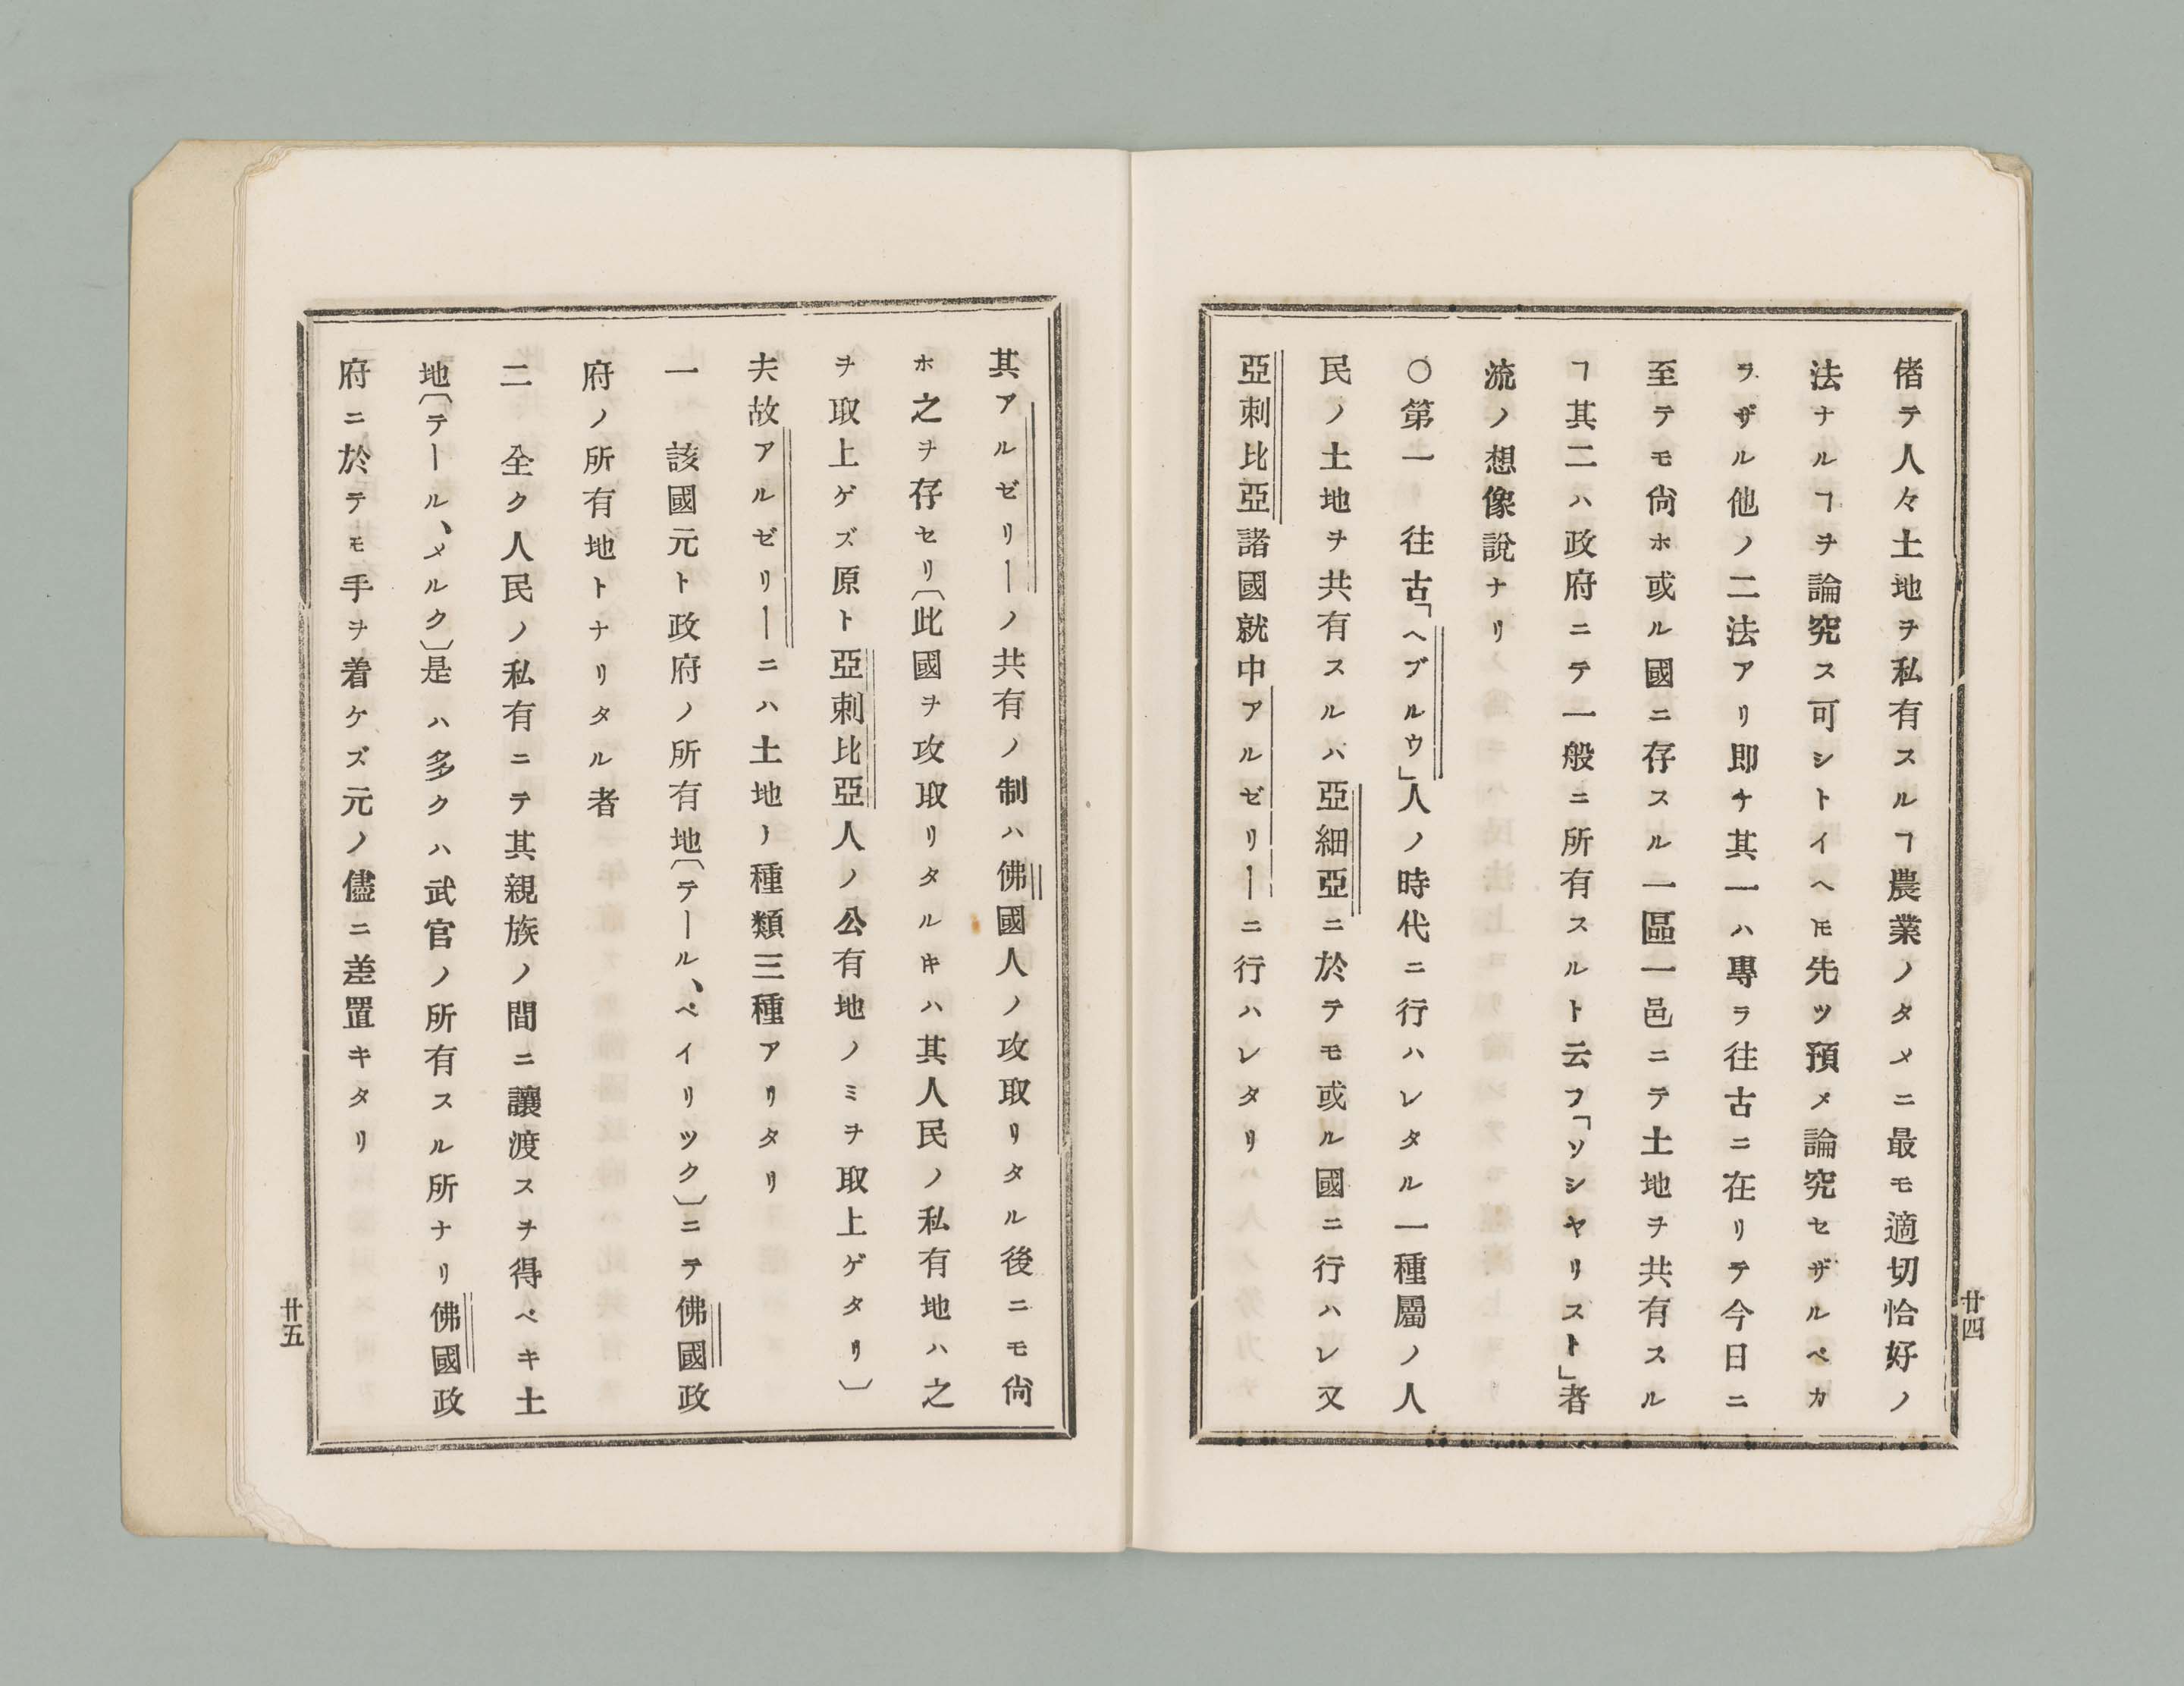 偖テ人々土地ヲ私有スルヿ農業ノタメニ最モ適切恰好ノ
法ナルヿヲ論究ス可シトイヘ𪜈先ツ預メ論究セザルベカ
ラザル他ノ二法アリ即チ其一ハ專ラ往古ニ在リテ今日ニ
至テモ尙ホ或ル國ニ存スル一區一邑ニテ土地ヲ共有スル
ヿ其二ハ政府ニテ一般ニ所有スルト云フ「ソシヤリスト」者
流ノ想像說ナリ
○第一　往古「ヘブルウ」人ノ時代ニ行ハレタル一種屬ノ人
民ノ土地ヲ共有スルハ亞細亞ニ於テモ或ル國ニ行ハレ又
亞刺比亞諸國就中アルゼリーニ行ハレタリ
廿四
其アルゼリーノ共有ノ制ハ佛國人ノ攻取リタル後ニモ尙
ホ之ヲ存セリ〔此國ヲ攻取リタル𪜈ハ其人民ノ私有地ハ之
ヲ取上ゲズ原ト亞刺比亞人ノ公有地ノミヲ取上ゲタリ〕
夫故アルゼリーニハ土地ノ種類三種アリタリ
一　該國元ト政府ノ所有地〔テール、ベイリツク〕ニテ佛國政
府ノ所有地トナリタル者
二　全ク人民ノ私有ニテ其親族ノ間ニ讓渡スヲ得ベキ土
地〔テール、メルク〕是ハ多クハ武官ノ所有スル所ナリ佛國政
府ニ於テモ手ヲ着ケズ元ノ儘ニ差置キタリ
廿五